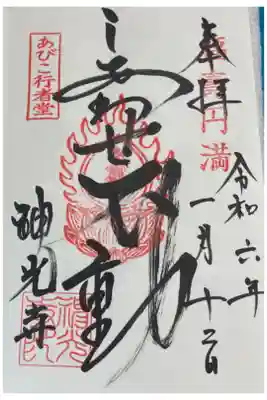 奉拝
円満
令和六年
一月
しあわせ不動
あびこ行者堂
神光寺